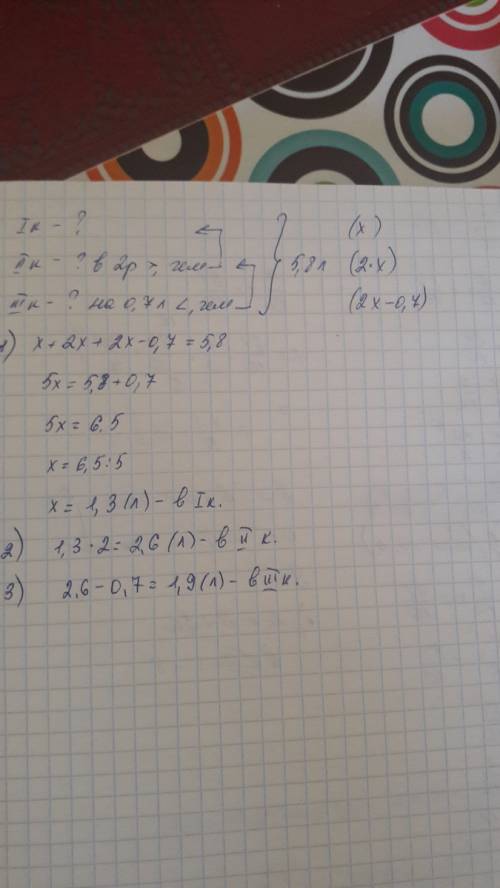 Iк - ? (x)
IIк - ? в 2р >, чем 5,8л (2·x)
IIIк - ? на 0,7л <, чем (2x-0,7)
1) x+2x+2x-0,7=5,8
5x=5,8+0,7
5x=6,5
x=6,5:5
x=1,3(л)- в Iк.
2) 1,3·2=2,6(л)- в II к.
3) 2,6-0,7=1,9(л)- в IIIк.